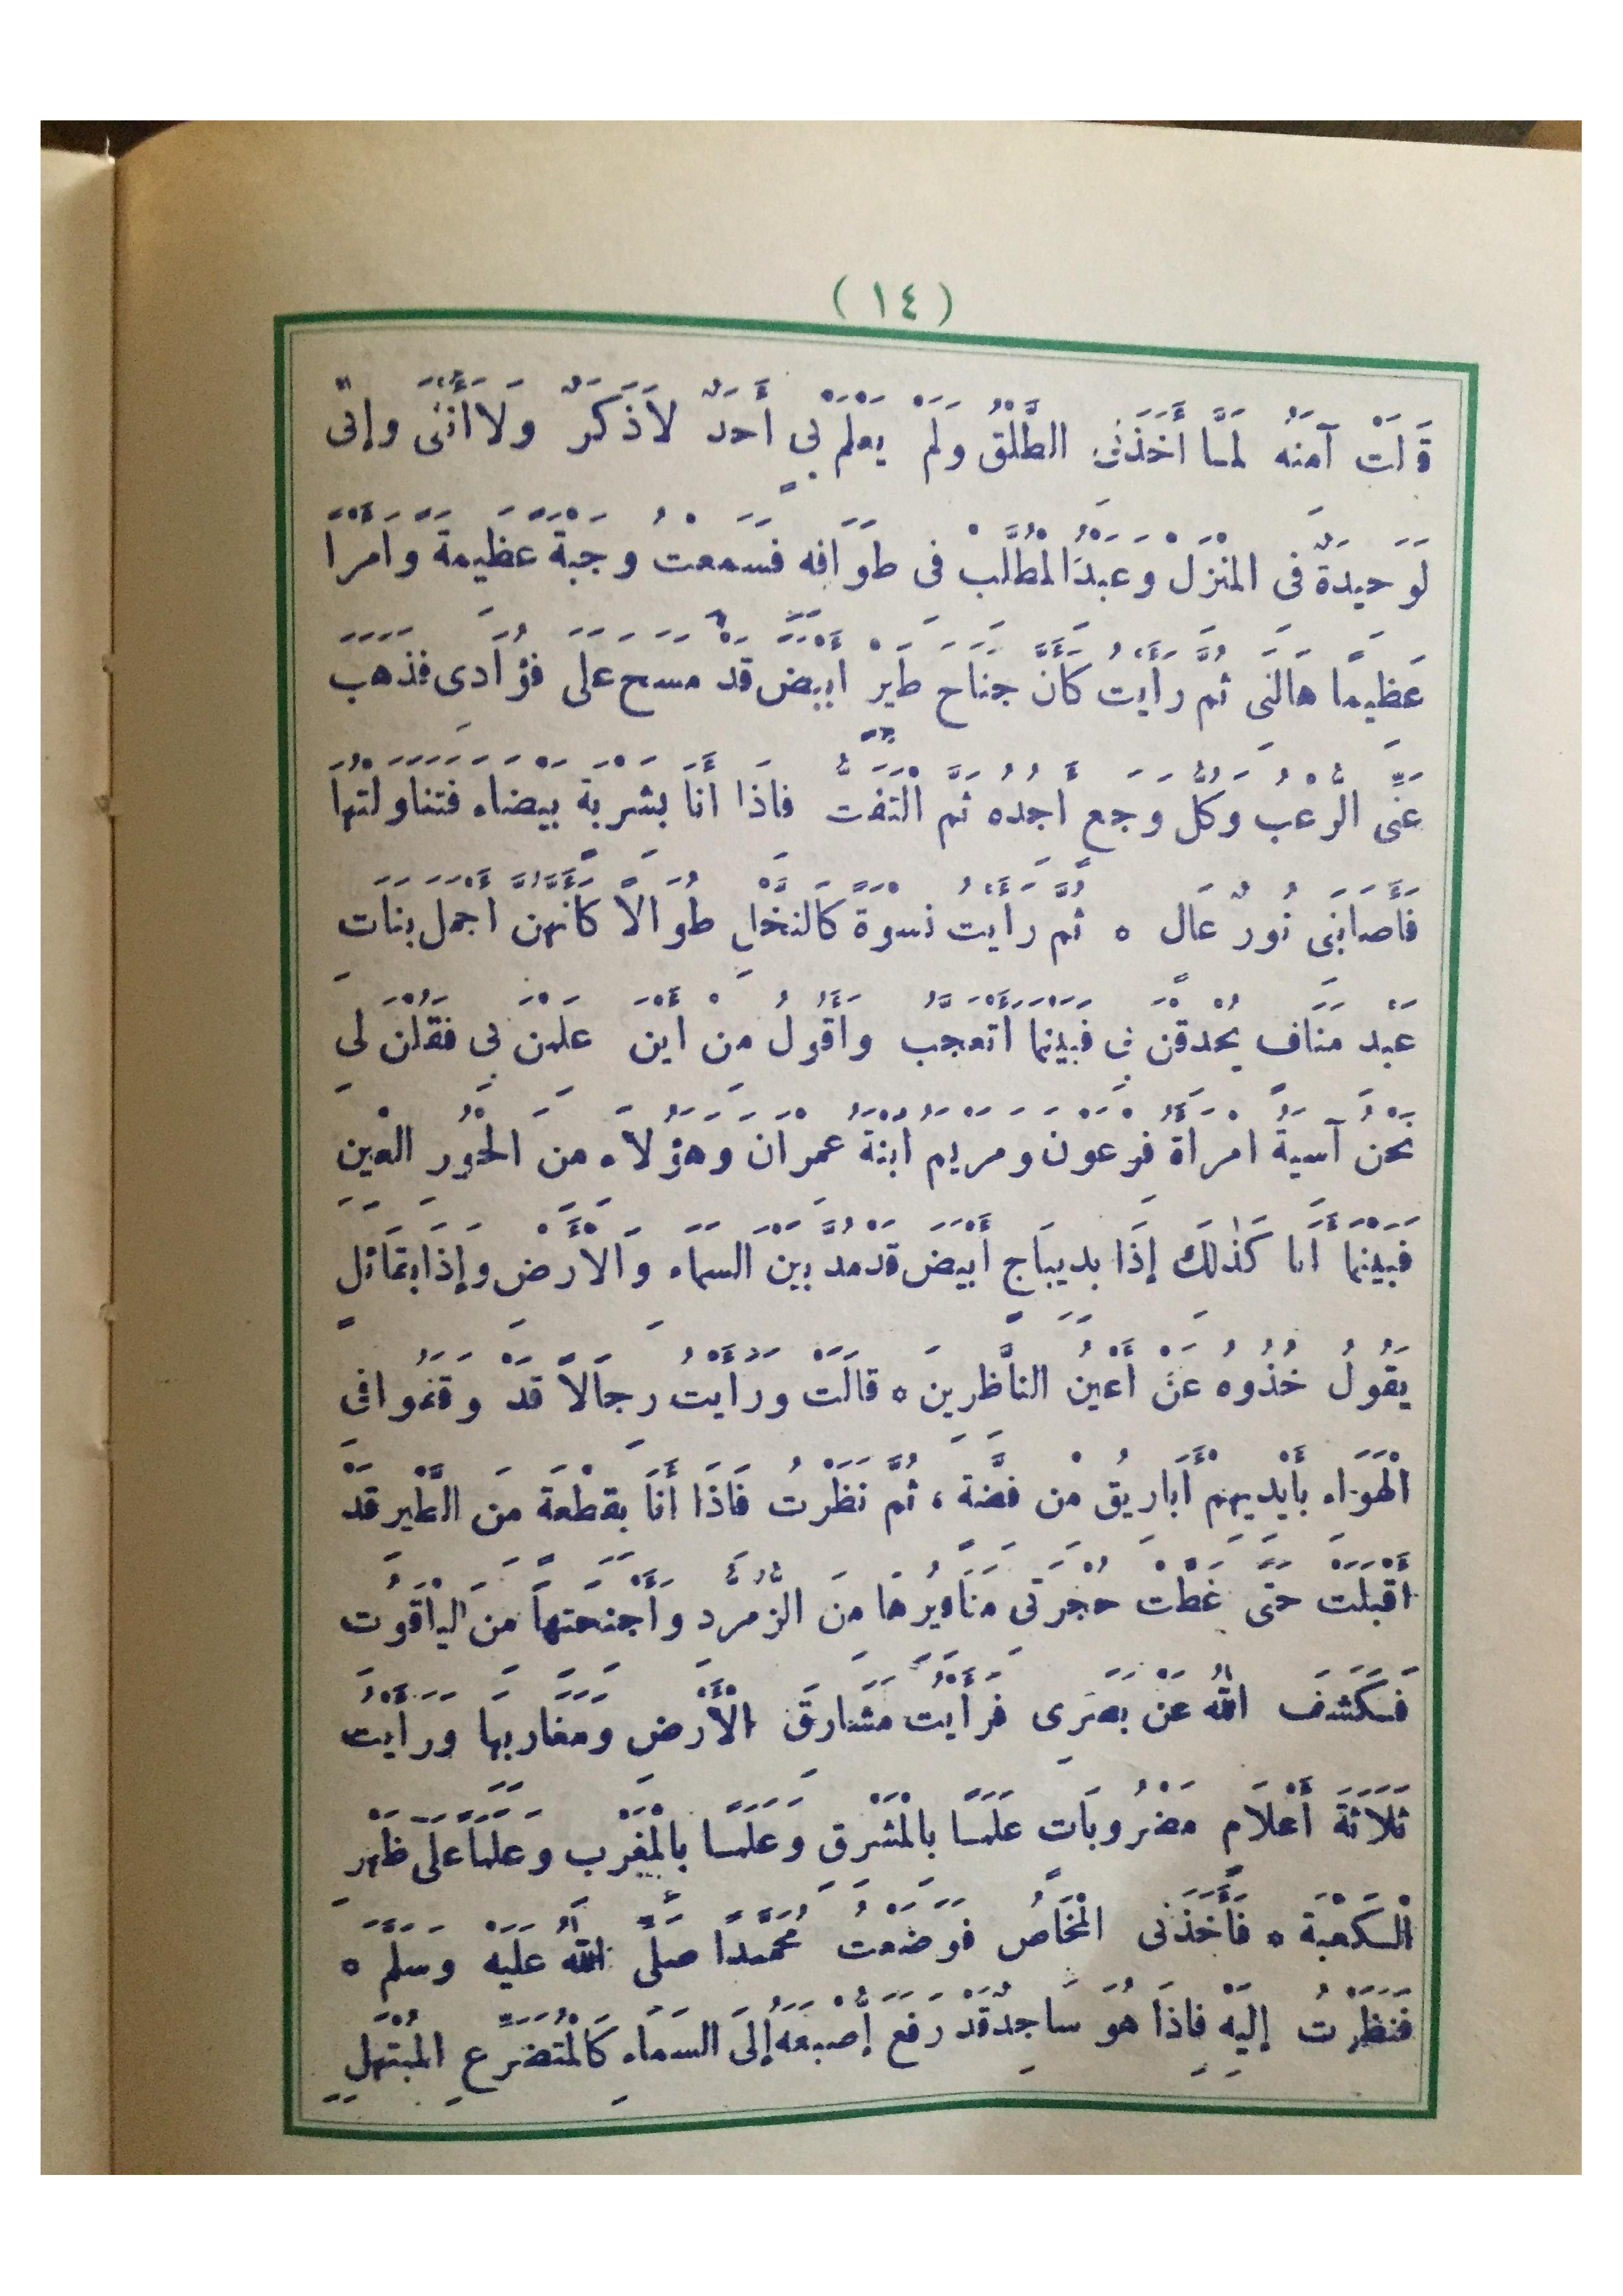 (١٤)
قَالَتْ آمِنَةُ لَمَّا أَخَذَنِى الطَّلْقُ وَلَمْ يَعْلَمْ بِى أَحَدٌ لَا ذَكَرٌ وَلَا أُنْثَى وَإِنِّى
لَوَحِيدَةٌ فِى الْمَنْزِلِ وَعَبْدُ الْمُطَّلِبِ فِى طَوَافِهِ فَسَمِعْتُ وَجْبَةً عَظِيمَةً وَأَمْرًا
عَظِيمًا هَالَنِى ثُمَّ رَأَيْتُ كَأَنَّ جَنَاحَ طَيْرٍ أَبْيَضَ قَدْ مَسَحَ عَلَى فُؤَادِى فَذَهَبَ
عَنِّى الرُّعْبُ وَكُلُّ وَجَعٍ أَجِدُهُ ثُمَّ الْتَفَتُّ فَإِذَا أَنَا بِشَرْبَةٍ بَيْضَاءَ فَتَنَاوَلْتُهَا
فَأَصَابَنِى نُورٌ عَالٍ ه ثُمَّ رَأَيْتُ نِسْوَةً كَالنَّخْلِ طُوَالًا كَأَنَّهُنَّ أَجْمَلُ بَنَاتِ
عَبْدِ مَنَافٍ يُحْدِقْنَ بِى فَبَيْنَمَا أَتَعَجَّبُ وَأَقُولُ مِنْ أَيْنَ عَلِمْنَ بِى فَقُلْنَ لِى
نَحْنُ آسِيَةُ امْرَأَةُ فِرْعَوْنَ وَمَرْيَمُ ابْنَةُ عِمْرَانَ وَهَؤُلَاءِ مِنَ الْحُورِ الْعِينِ
فَبَيْنَمَا أَنَا كَذَلِكَ إِذَا بِدِيبَاجٍ أَبْيَضَ قَدْ مُدَّ بَيْنَ السَّمَاءِ وَالْأَرْضِ وَإِذَا بِقَائِلٍ
يَقُولُ خُذُوهُ عَنْ أَعْيُنِ النَّاظِرِينَ ه قَالَتْ وَرَأَيْتُ رِجَالًا قَدْ وَقَفُوا فِى
الْهَوَاءِ بِأَيْدِيهِمْ أَبَارِيقُ مِنْ فِضَّةٍ ، ثُمَّ نَظَرْتُ فَإِذَا أَنَا بِقِطْعَةٍ مِنَ الطَّيْرِ قَدْ
أَقْبَلَتْ حَتَّى غَطَّتْ حُجْرَتِى مَنَاقِيرُهَا مِنَ الزُّمُرُّدِ وَأَجْنِحَتُهَا مِنَ الْيَاقُوتِ
فَكَشَفَ اللهُ عَنْ بَصَرِى فَرَأَيْتُ مَشَارِقَ الْأَرْضِ وَمَغَارِبَهَا وَرَأَيْتُ
ثَلَاثَةَ أَعْلَامٍ مَضْرُوبَاتٍ عَلَمًا بِالْمَشْرِقِ وَعَلَمًا بِالْمَغْرِبِ وَعَلَمًا عَلَى ظَهْرِ
الْكَعْبَةِ ه فَأَخَذَنِى الْمَخَاضُ فَوَضَعْتُ مُحَمَّدًا صَلَّى اللهُ عَلَيْهِ وَسَلَّمَ ه
فَنَظَرْتُ إِلَيْهِ فَإِذَا هُوَ سَاجِدٌ قَدْ رَفَعَ إِصْبَعَهُ إِلَى السَّمَاءِ كَالْمُتَضَرِّعِ الْمُبْتَهِلِ